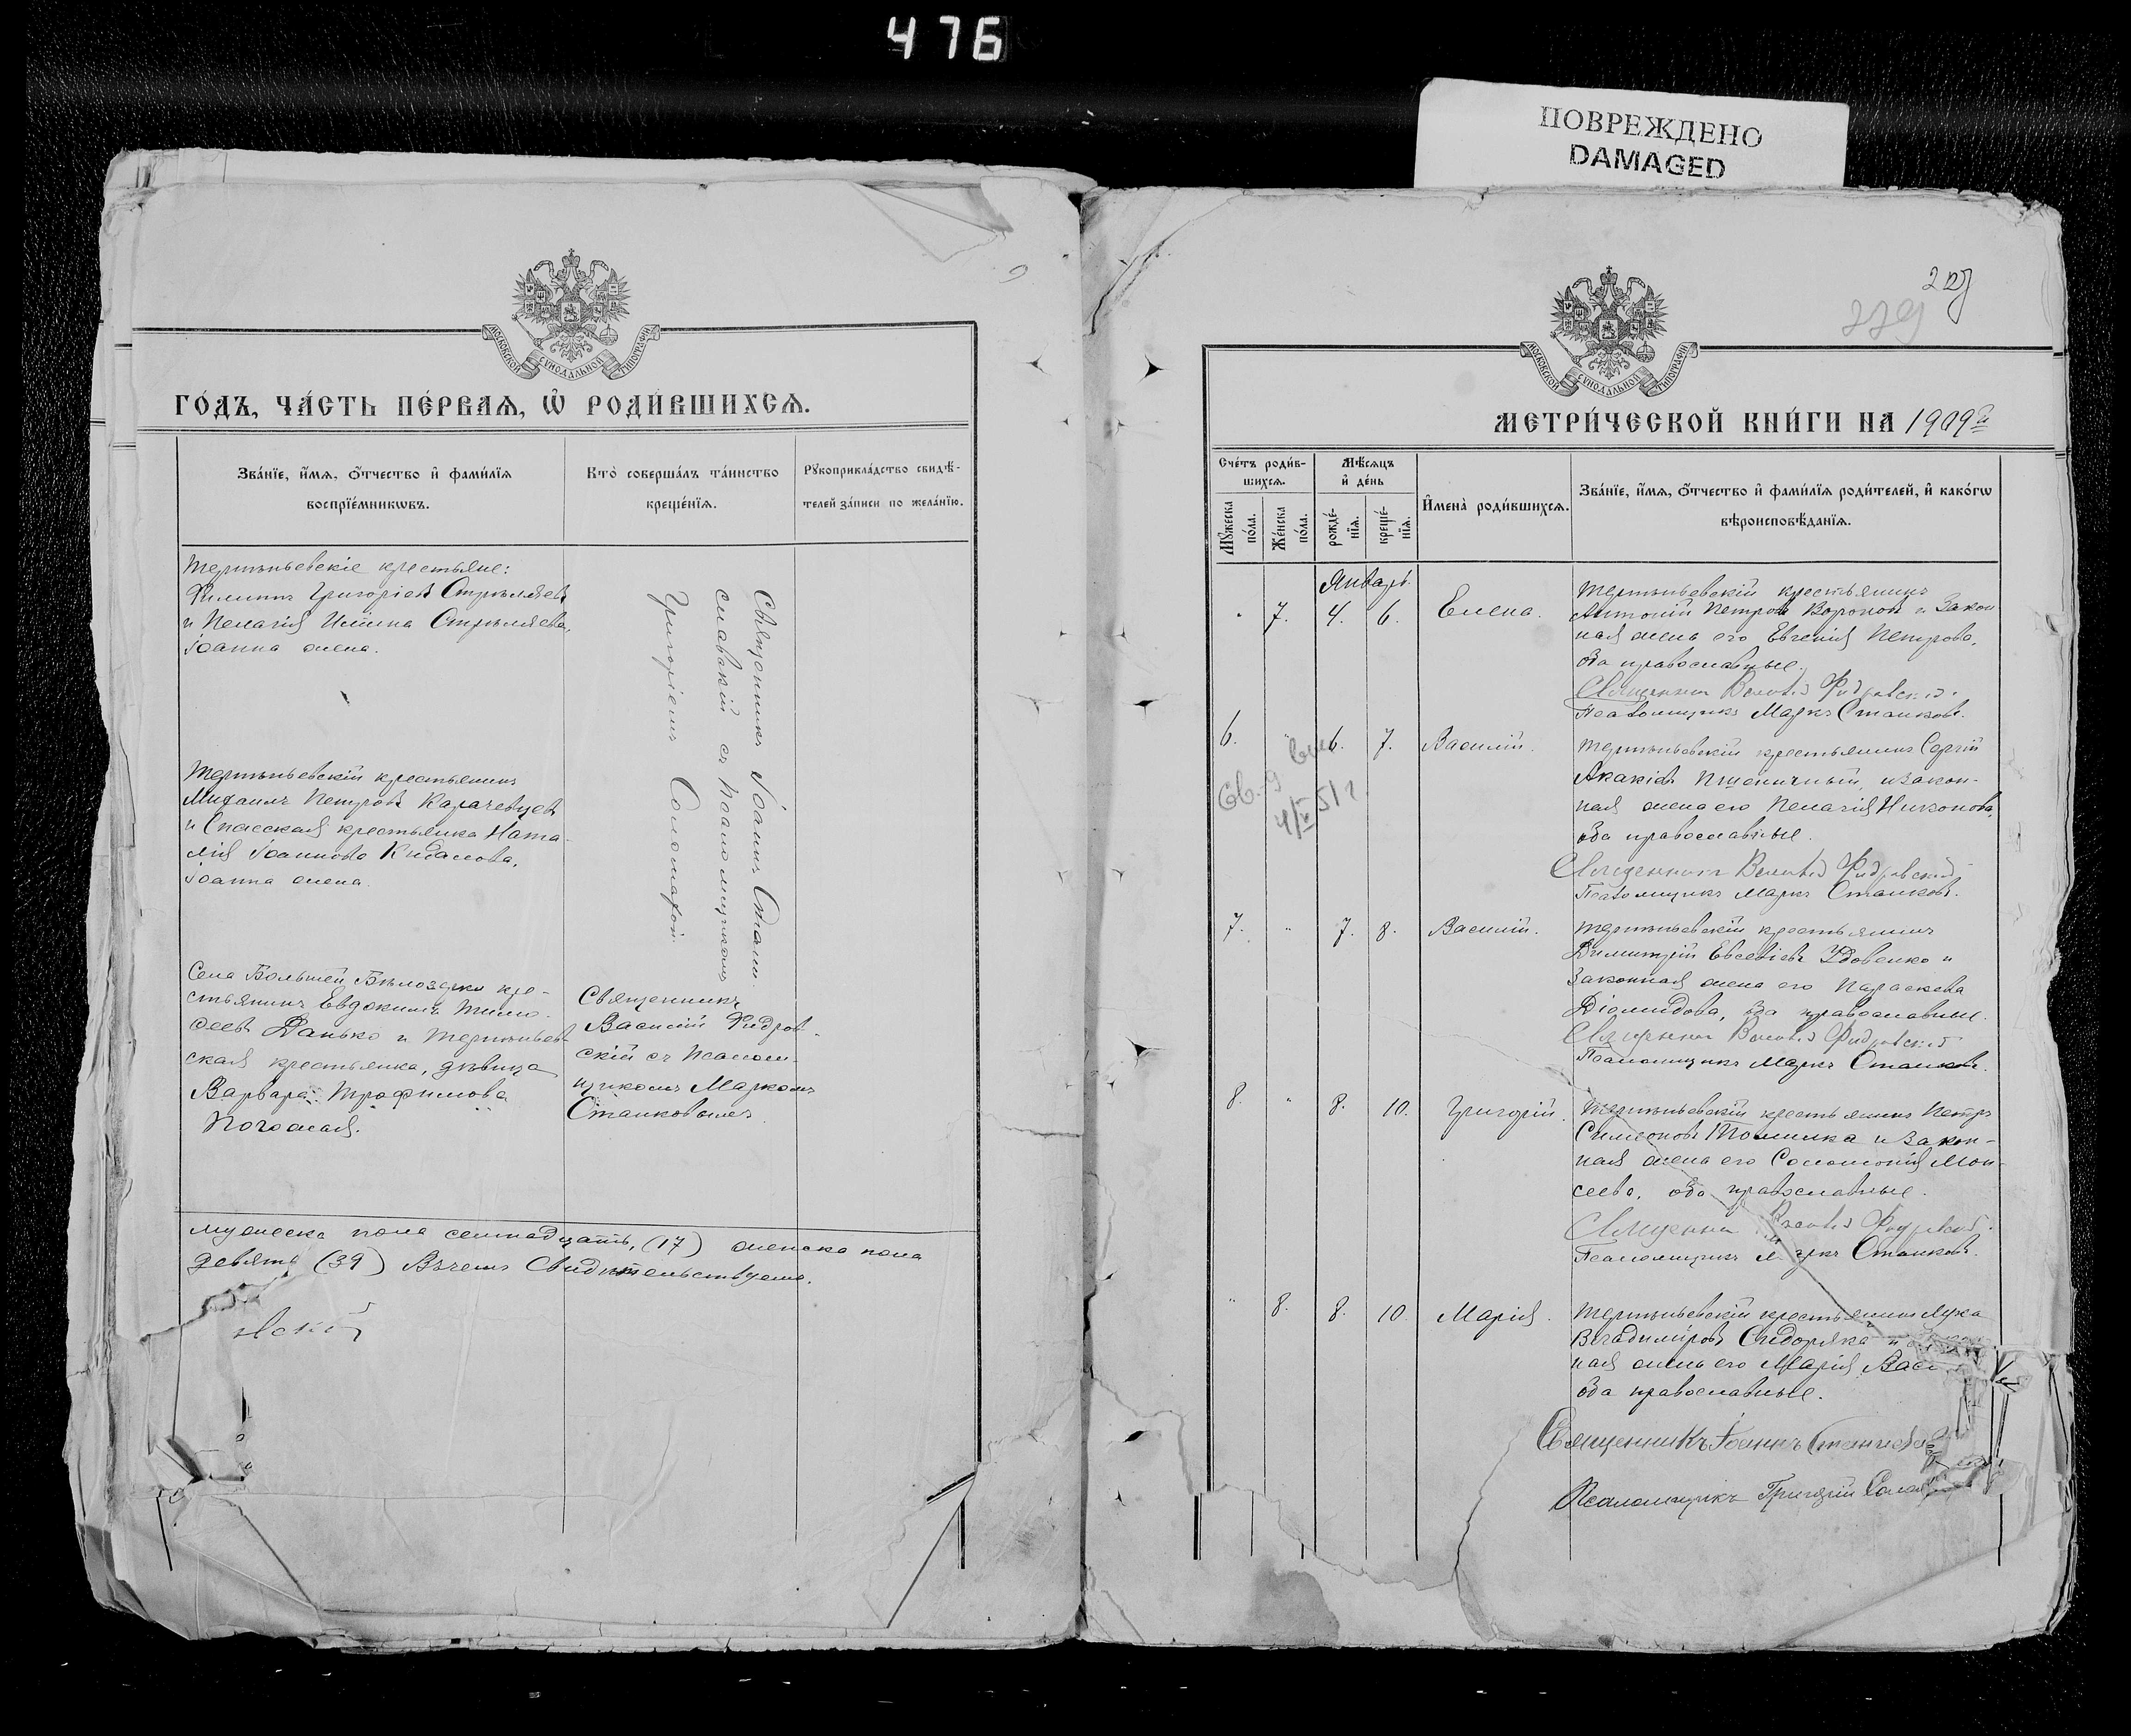 476
ПОВРЕЖДЕНО
DAMAGED
МОСКОВСКОЙ СУНОДАЛЬНОЙ ТИПОГРАФІИ
ГО́ДЪ, ЧА́СТЬ ПЕ́РВАѦ, Ѿ РОДИ́ВШИХСѦ.
Зва́нїе, и҆́мѧ, ѻ҆́тчество и҆ фами́лїѧ
воспрїе́мникѡвъ.
Кто̀ соверша́лъ та́инство
креще́нїѧ.
Рꙋкоприкла́дство свидѣ́-
телей за́писи по жела́нїю.
Терпѣньевскіе крестьяне:
Филиппъ Григоріевъ Стрѣляевъ
и Пелагія Стрѣляева,
Іоанна жена.
Священникъ Іоаннъ Стани-
славскій съ Псаломщикомъ
Григоріемъ Соломахой.
Терпѣньевскій крестьянинъ
Михаилъ Петровъ Карачевцевъ
и Спасская крестьянка Ната-
лія Іоаннова
Іоанна жена.
Села Большой Бѣлозерки кре-
стьянинъ Евдокимъ Тимо-
ѳеевъ Данько и Терпѣньев-
ская крестьянка, дѣвица
Варвара Трофимова
Погожая.
Священникъ
Василій Фидров-
скій съ Псалом-
щикомъ Маркомъ
Станковымъ
мужеска пола семнадцать, (17) женска пола
девять (39) Въ чемъ Свидѣтельствуемъ.
вскій
229
МОСКОВСКОЙ СУНОДАЛЬНОЙ ТИПОГРАФІИ
МЕТРИ́ЧЕСКОЙ КНИ́ГИ НА 1909й
Сче́тъ роди́в-
шихсѧ.
Мꙋ́жеска по́ла.
Же́нска по́ла.
Мѣ́сѧцъ
и҆ де́нь
рожде́-нїѧ.
креще́-нїѧ.
И҆мена̀ роди́вшихсѧ.
Зва́нїе, и҆́мѧ, ѻ҆́тчество и҆ фами́лїѧ роди́телей, и҆ како́гѡ
вѣроисповѣ́данїѧ.
Январь.
" 7. 4. 6. Елена.
Терпѣньевскій крестьянинъ
Антоній Петровъ Вороной и закон
ная жена его Евгенія Петрова,
оба православные.
Священникъ Василій Фидровскій.
Псаломщикъ Маркъ Станковъ.
6. " 6. 7. Василій.
Терпѣньевскій крестьянинъ Сергій
Акакіевъ Пшеничный, и закон-
ная жена его Пелагія Никонова,
оба православные.
Священникъ Василій Фидровскій
Псаломщикъ Маркъ Станковъ.
7. " 7. 8. Василій.
Терпѣньевскій крестьянинъ
Димитрій Евсевіевъ Удовенко и
законная жена его Параскева
Діомидова, оба православные.
Священникъ Василій Фидровскій
Псаломщикъ Маркъ Станковъ.
8. " 8. 10. Григорій.
Терпѣньевскій крестьянинъ Петръ
Симеоновъ Томилка и закон-
ная жена его Соломонія Мои-
сеева, оба православные.
Священникъ Василій Фидровскій.
Псаломщикъ Маркъ Станковъ.
" 8. 8. 10. Марія.
Терпѣньевскій крестьянинъ Лука
Владиміровъ Сидоряка и
ная жена его Марія
оба православные.
Священникъ Іоаннъ
Псаломщикъ Григорій